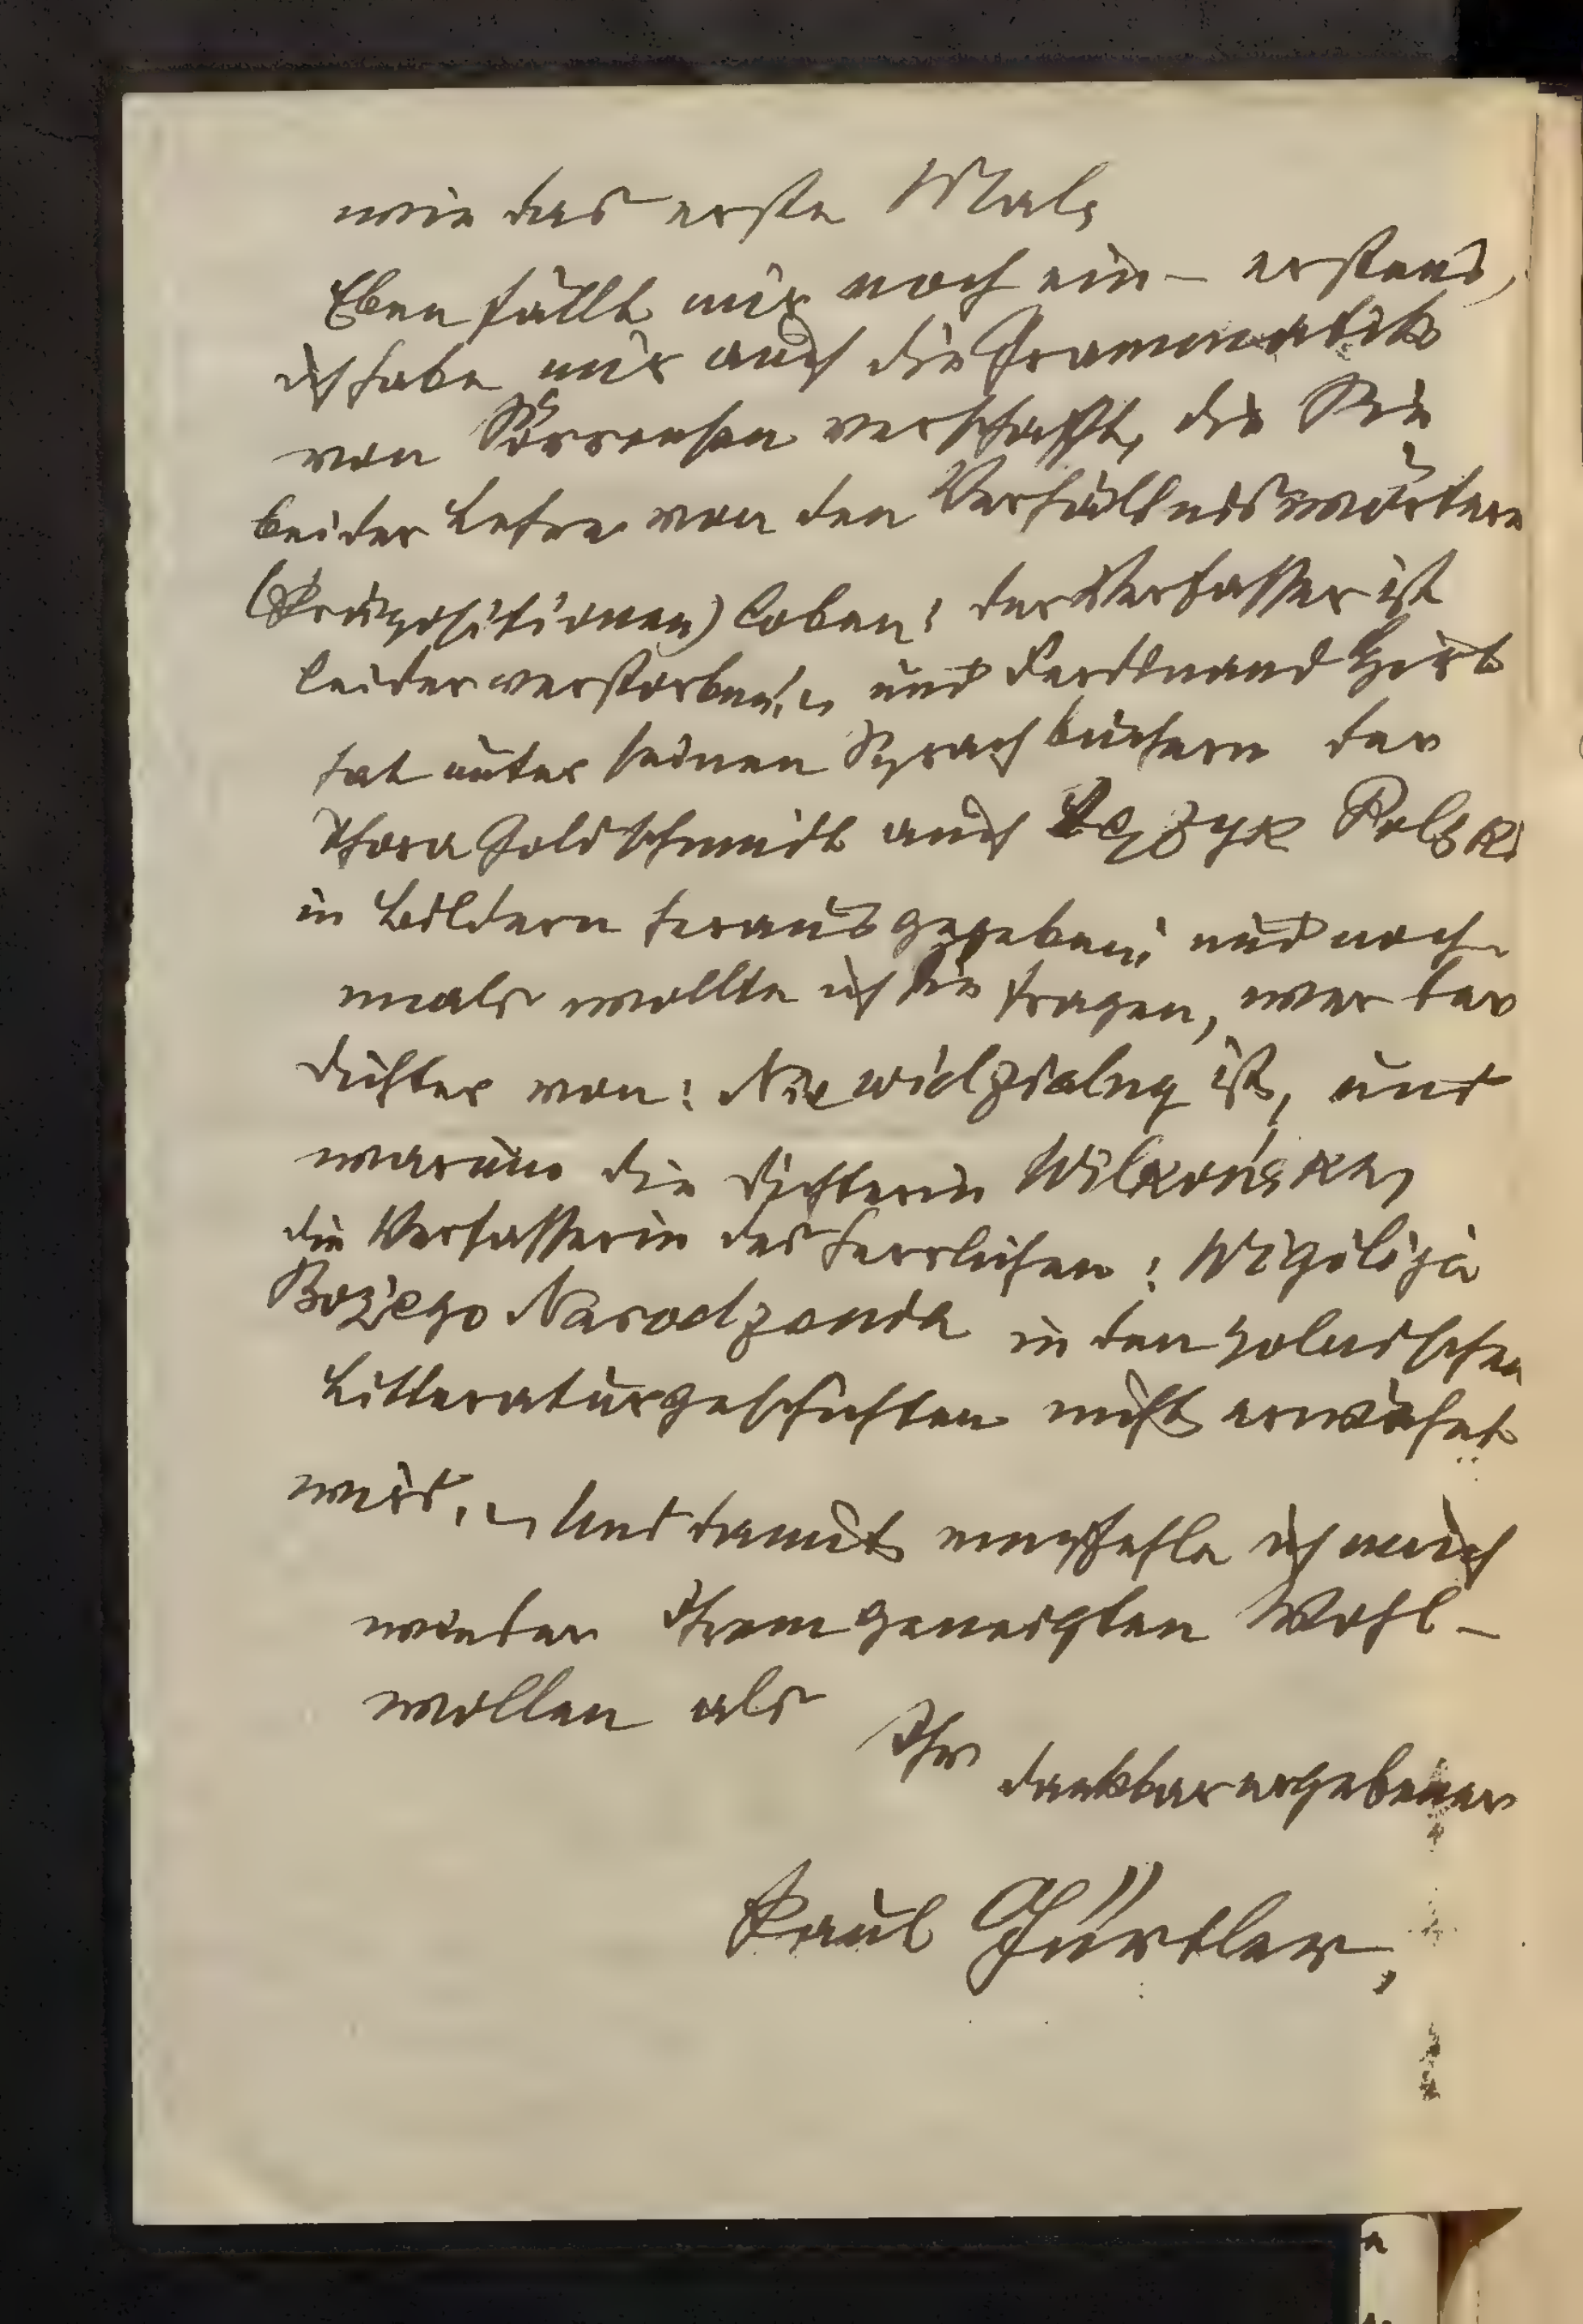 wie das erste Mal,
Eben fällt mir noch ein – erstens,
ich habe mir auch die Grammatik
von Sörrensen verschafft, die Sie
bei der Lehre von den Verhältniswörtern
(Präpositionen) loben; der Verfasser ist
leider verstorben; und Ferdinand Hirt
hat unter seinen Sprachbüchern der
Thora Goldschmidt auch Język Polski
in Bildern herausgegeben; und noch-
mals wollte ich Sie fragen, wer der
Dichter von: Niewidzialny ist, und
warum die Dichterin Wilkońska,
die Verfasserin des herrlichen: Wigilija
Bożego Narodzenia in den polnischen
Litteraturgeschichten nicht erwähnt
wird. – Und damit empfehle ich mich
wieder Ihrem geneigten Wohl-
wollen als
Ihr
dankbar ergebener
Paul Gürtler,